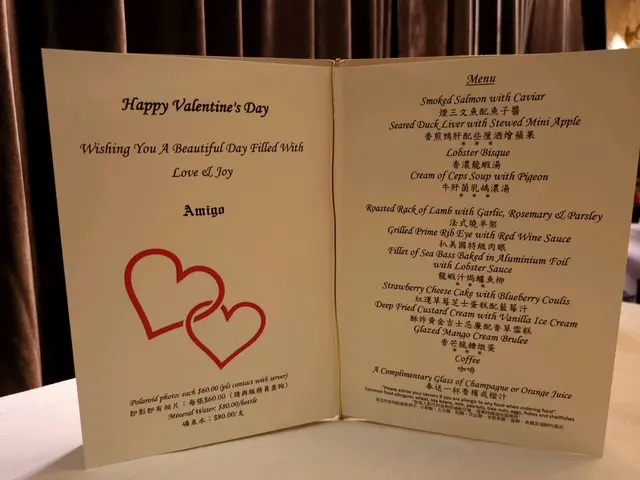 Happy Valentine's Day
Wishing You A Beautiful Day Filled With
Love & Joy
Amigo
Polaroid photo: each $60.00 (pls contact with server)
Mineral Water: $80.00/bottle
礦泉水：$80.00/支
Menu
Smoked Salmon with Caviar
煙三文魚配魚子醬
Seared Duck Liver with Stewed Mini Apple
香煎鴨肝配些厘酒燴蘋果
* * *
Lobster Bisque
香濃龍蝦湯
Cream of Ceps Soup with Pigeon
牛肝菌乳鴿濃湯
* * *
Roasted Rack of Lamb with Garlic, Rosemary & Parsley
法式燒羊架
Grilled Prime Rib Eye with Red Wine Sauce
扒美國特級肉眼
Fillet of Sea Bass Baked in Aluminium Foil
with Lobster Sauce
龍蝦汁焗鱸魚柳
* * *
Strawberry Cheese Cake with Blueberry Coulis
紅運草莓芝士蛋糕配藍莓汁
Deep Fried Custard Cream with Vanilla Ice Cream
酥炸黃金吉士忌廉配香草雪糕
Glazed Mango Cream Brulee
香芒脆糖燉蛋
* * *
Coffee
咖啡
A Complimentary Glass of Champagne or Orange Juice
奉送一杯香檳或橙汁
"Please advise your servers if you are allergic to any food when ordering food".
Common food allergens: wheat, soy beans, milk, peanuts, tree nuts, eggs, fishes and shellfishes